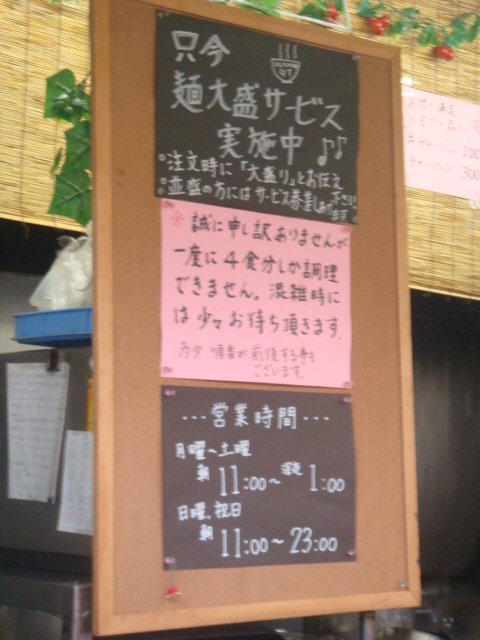 只今
麺大盛サービス
実施中♪♪
・注文時に「大盛り」とお伝え下さい
・並盛の方にはサービス券差しあげます
※誠に申し訳ありませんが
一度に4食分しか調理
できません。混雑時に
は少々お待ち頂きます.
多少 順番が前後する事も
ございます.
---営業時間---
月曜〜土曜
朝11:00〜深夜1:00
日曜,祝日
朝11:00〜23:00
チャーハン 200
チャーハン 300